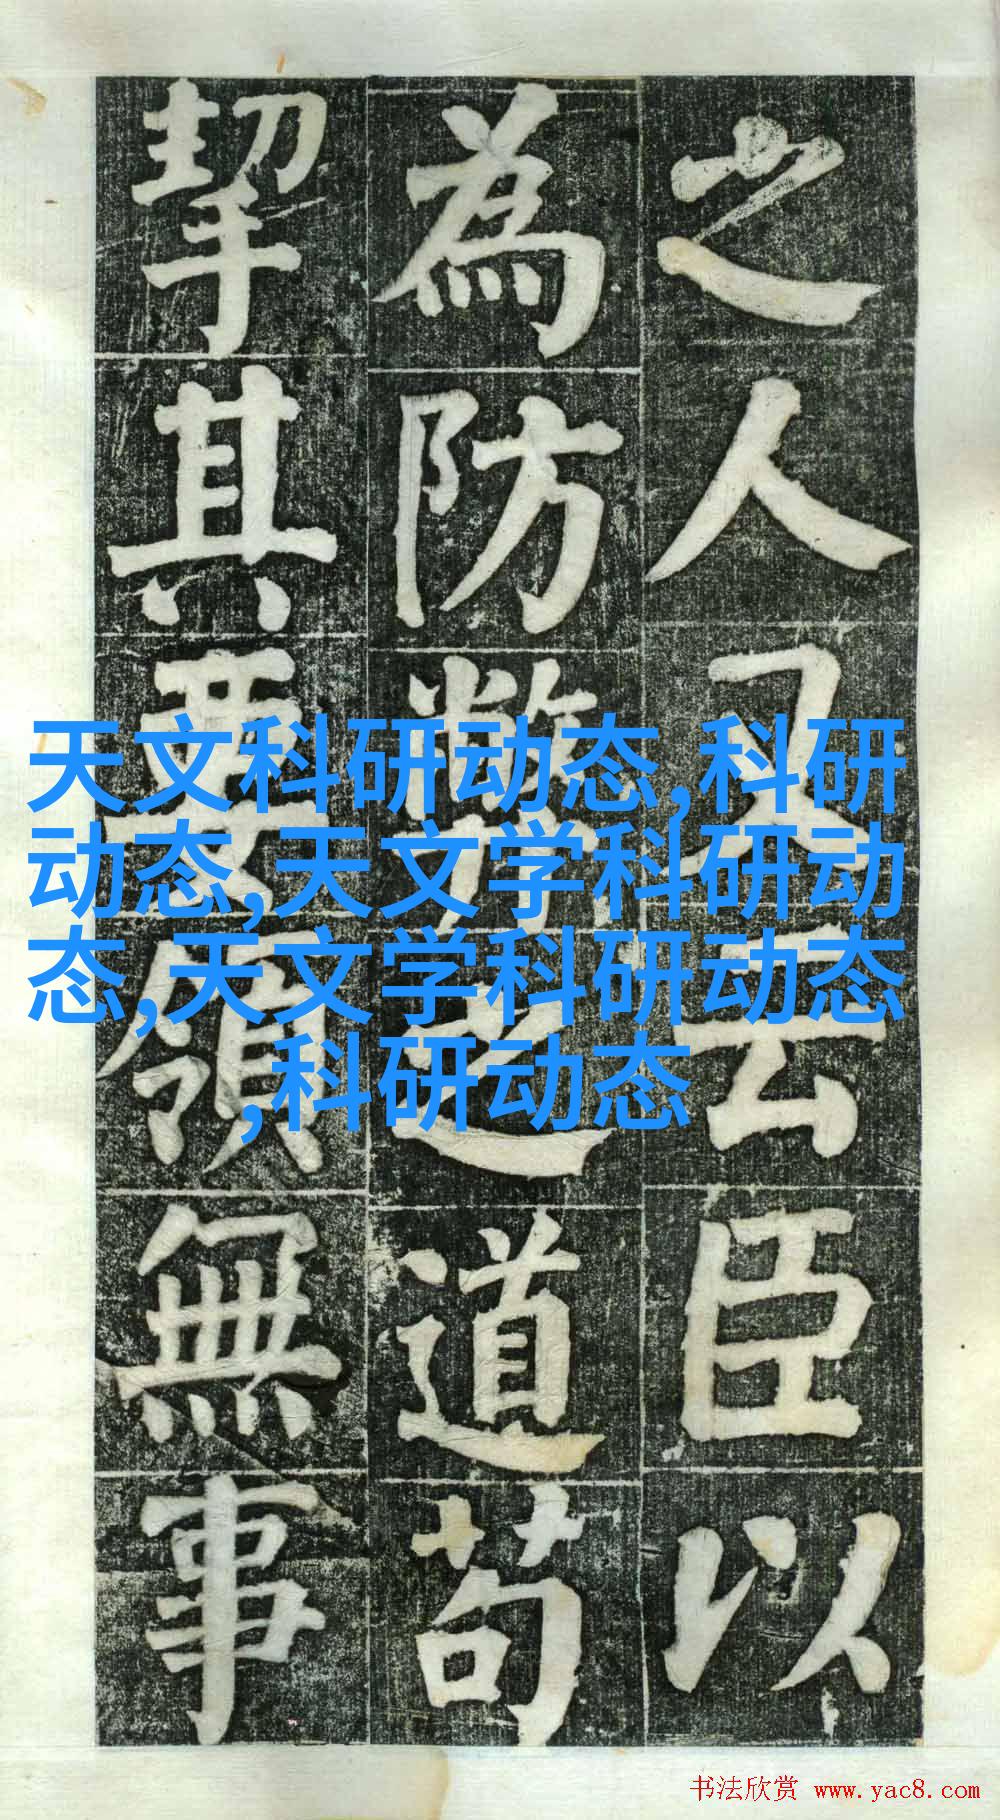 之人又云臣以
為防弊之道苟
挈其要領無事
天文科研动态,科研
动态,天文学科研动
态,天文学科研动态
,科研动态
书法欣赏 www.yac8.com